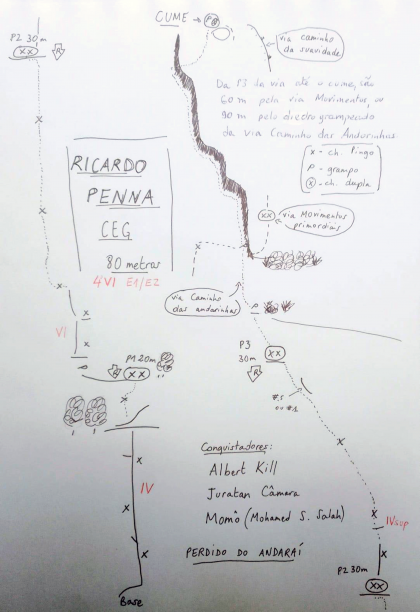 CUME → P
via caminho
da suavidade
P2 30m
XX
R
Da P3 da via até o cume, são
60 m pela via Movimentos, ou
90 m pelo diedro grampeado
da via Caminho das Andorinhas.
x - ch. Pingo
P - grampo
ⓧ - ch. dupla
RICARDO
PENNA
CEG
80 metros
4º VI E1/E2
XX
via Movimentos
primordiais
via Caminho
das andorinhas
P
VI
P1 20m
R
XX
P3
30m
XX
R
#.5
ou #1
IV
Conquistadores:
Albert Kill
Juratan Câmara
Momô (Mohamed S. Salah)
IVsup
PERDIDO DO ANDARAÍ
P2 30m
XX
Base